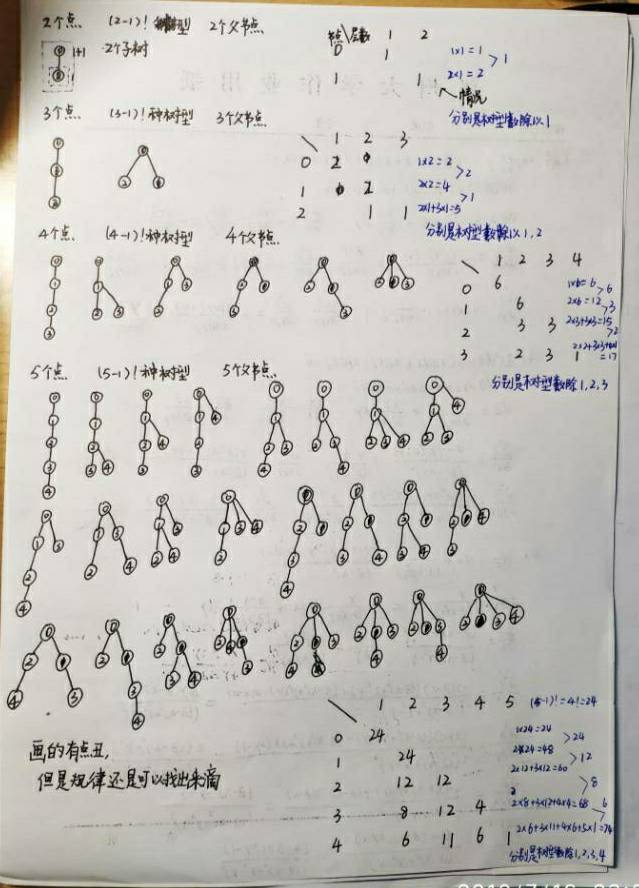 2个点. (2-1)! 种树型 2个父节点
2个子树
节点\层数 1 2
0 1
1 1
1×1=1
2×1=2
>1
情况
分别是树型数除以1
3个点. (3-1)!种树型 3个父节点
1 2 3
0 2
1 2
2 1 1
1×2=2
2×2=4
2×1+3×1=5
>2
>1
分别是树型数除以1,2
4个点. (4-1)!种树型 4个父节点
1 2 3 4
0 6
1 6
2 3 3
3 2 3 1
1×6=6
2×6=12
2×3+3×3=15
=17
>6
>3
>2
分别是树型数除1,2,3
5个点. (5-1)!种树型 5个父节点
画的有点丑,
但是规律还是可以找出来滴
1 2 3 4 5 (5-1)!=4!=24
0 24
1 24
2 12 12
3 8 12 4
4 6 11 6 1
1×24=24
2×24=48
2×12+3×12=60
2×8+3×12+4×4=68
2×6+3×11+4×6+5×1=74
>24
>12
>8
6
分别是树型数除1,2,3,4